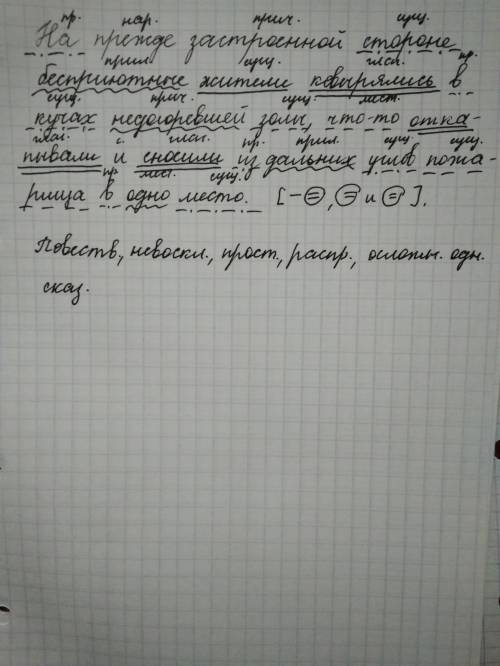 пр. нар. прич. сущ.
На прежде застроенной стороне
прил. сущ. глаг. пр.
бесприютные жители ковырялись в
сущ. прич. сущ. мест.
кучах недогоревшей золы, что-то отка-
глаг. с. глаг. пр. прил. сущ. сущ.
пывали и сносили из дальних углов пожа-
пр. мест. сущ.
рища в одно место. [-=, = и =].
Повеств., невоскл., прост., распр., осложн. одн.
сказ.